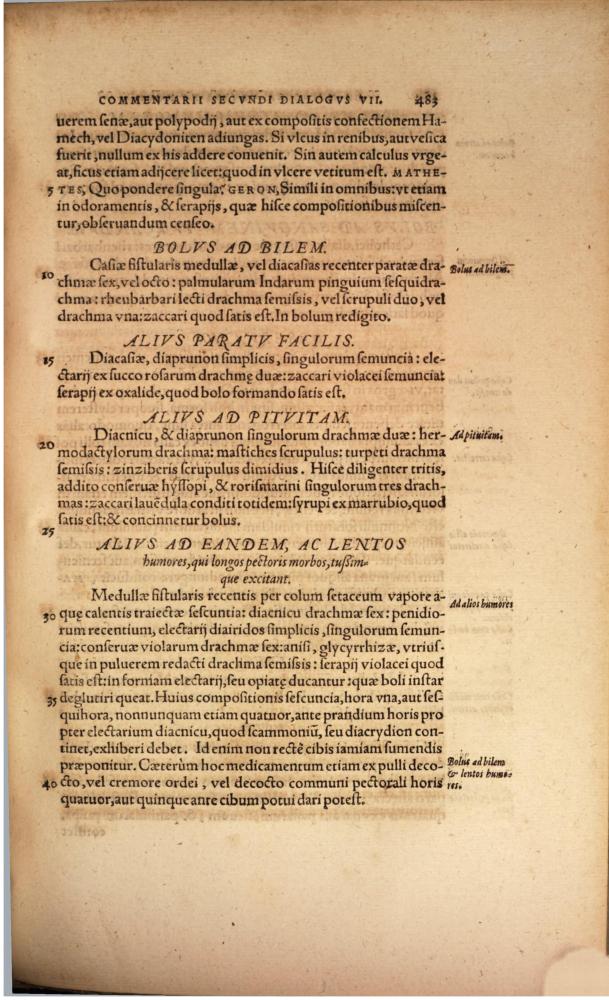 COMMENTARII SECVNDI DIALOGVS VII. 483
uerem senæ,aut polypodij, aut ex compositis confectionem Ha-
mech, vel Diacydoniten adiungas. Si vlcus in renibus, aut vesica
fuerit, nullum ex his addere conuenit. Sin autem calculus vrge-
at, ficus etiam adijcere licet: quod in vlcere vetitum est. MATHE-
5 TES, Quo pondere singula? GERON, Simili in omnibus: vt etiam
in odoramentis, & serapijs, quæ hisce compositionibus miscen-
tur, obseruandum censeo.
BOLVS AD BILEM.
Casiæ fistularis medullæ, vel diacasias recenter paratæ dra- Bolus ad bilem.
10 chmæ sex, vel octo: palmularum Indarum pinguium sesquidra-
chma: rheubarbari lecti drachma semissis, vel scrupuli duo, vel
drachma vna: zaccari quod satis est. In bolum redigito.
ALIVS PARATV FACILIS.
15 Diacasiæ, diaprunon simplicis, singulorum semuncia: ele-
ctarij ex succo rosarum drachmę duæ: zaccari violacei semuncia:
serapij ex oxalide, quod bolo formando satis est.
ALIVS AD PITVITAM.
Diacnicu, & diaprunon singulorum drachmæ duæ: her- Ad pituitam.
20 modactylorum drachma: mastiches scrupulus: turpeti drachma
semissis: zinziberis scrupulus dimidius. Hisce diligenter tritis,
addito conseruæ hyssopi, & rorismarini singulorum tres drach-
mas: zaccari lauēdula conditi totidem: syrupi ex marrubio, quod
satis est: & concinnetur bolus.
25
ALIVS AD EANDEM, AC LENTOS
humores, qui longos pectoris morbos, tussim-
que excitant.
Medullæ fistularis recentis per colum setaceum vapore a- Ad alios humores
30 quę calentis traiectæ sescuntia: diacnicu drachmæ sex: penidio-
rum recentium, electarij diairidos simplicis, singulorum semun-
cia: conseruæ violarum drachmæ sex: anisi, glycyrrhizæ, vtrius-
que in puluerem redacti drachma semissis: serapij violacei quod
satis est: in formam electarij, seu opiatę ducantur: quæ boli instar
35 deglutiri queat. Huius compositionis sescuncia, hora vna, aut ses-
quihora, nonnunquam etiam quatuor, ante prandium horis pro
pter electarium diacnicu, quod scammoniū, seu diacrydion con-
tinet, exhiberi debet. Id enim non rectè cibis iamiam sumendis
præponitur. Cæterùm hoc medicamentum etiam ex pulli deco- Bolus ad bilem
40 cto, vel cremore ordei, vel decocto communi pectorali horis & lentos humo-
quatuor, aut quinque ante cibum potui dari potest. res.